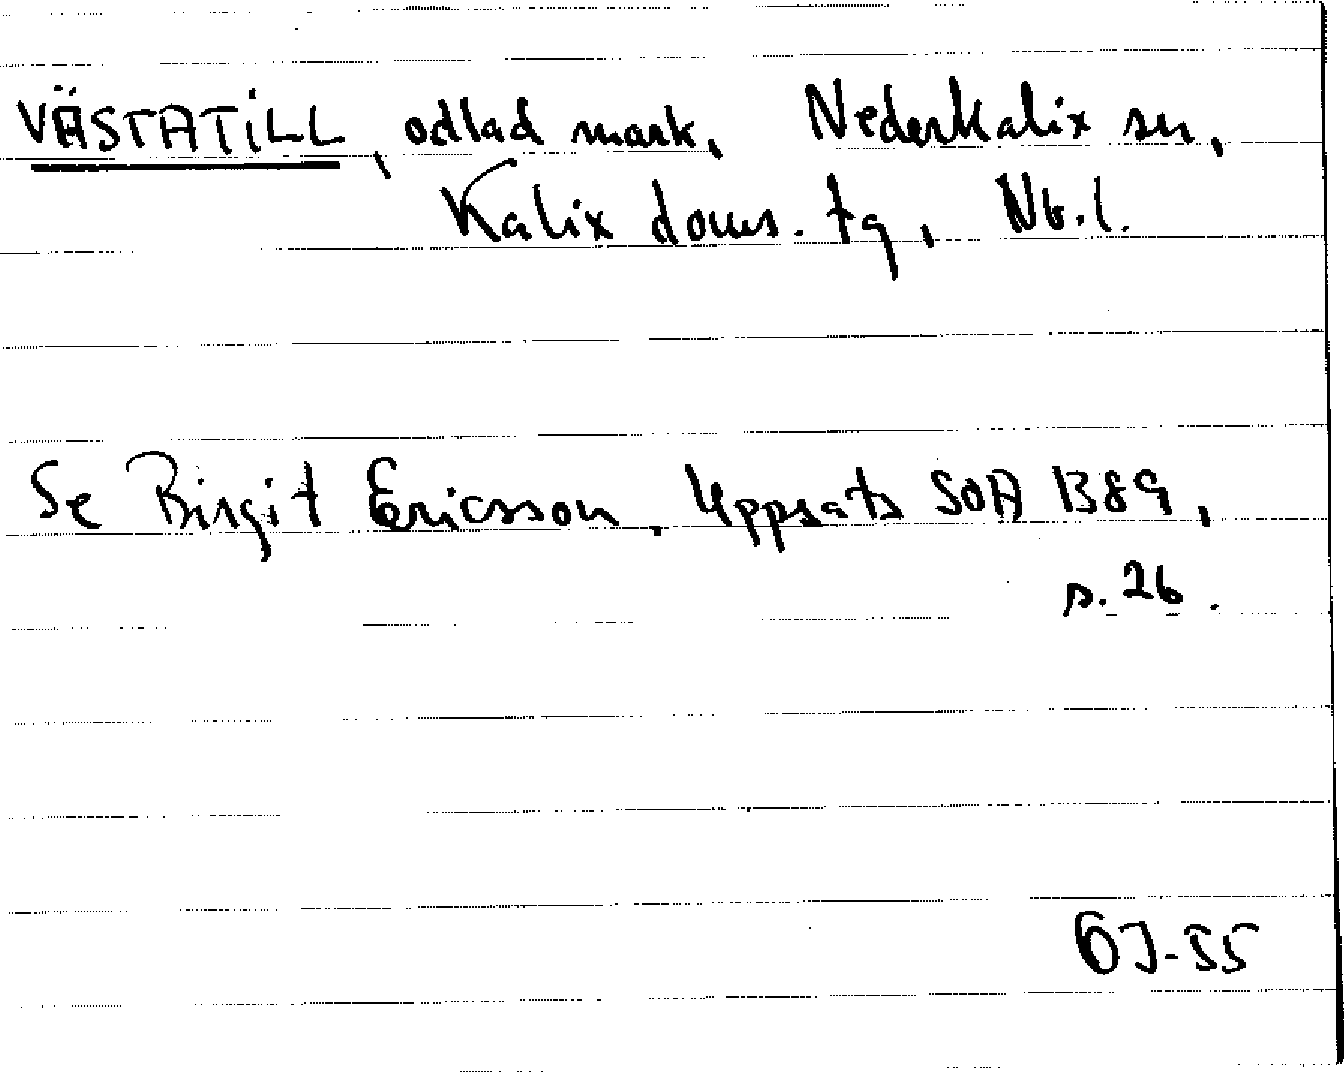 VÄSTATILL, odlad mark, Nederkalix sn,
Kalix doms. tg, Nb.l.
Se Birgit Ericsson, Uppsats SOA 1389,
s. 26.